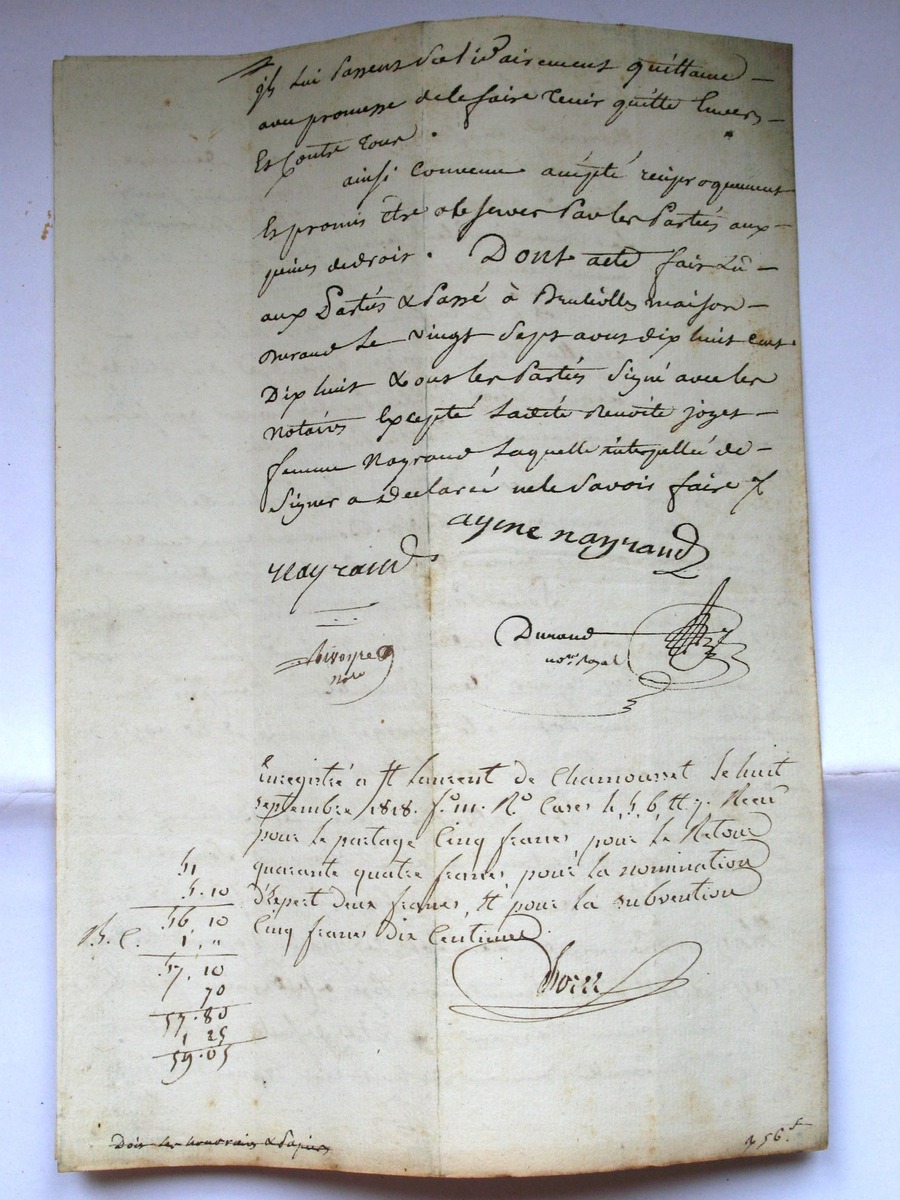 ils lui passent solidairement quittance
avec promesse de le faire tenir quitte Envers
Et Contre tous.
ainsi Convenu accépté réciproquement
Et promis être observer Par les Parties aux
peines de droit. Dont acte fait Lu
aux Parties & Passé à maison
Durand Le vingt Sept aout dix huit Cent
Dix huit & ont les Parties Signé avec les
Notaires Excepté Ladite Benoite joyet
femme Nayrand Laquelle interpellée de
Signer a déclaré ne le Savoir faire
ayme nayrand
nayrand
Durand
nore Royal
nore
Enregistré a St Laurent de Chamousset le huit
septembre 1818. fo 111. Ro Cases 4, 5, 6, et 7. Recu
pour le partage Cinq francs, pour le Retour
quarante quatre francs, pour la nomination
D'Expert deux francs, et pour la subvention
Cinq francs dix Centimes
51
5.10
56.10
1 "
57.10
70
57.80
1 25
59.05
Doit les honoraires & Papiers
56